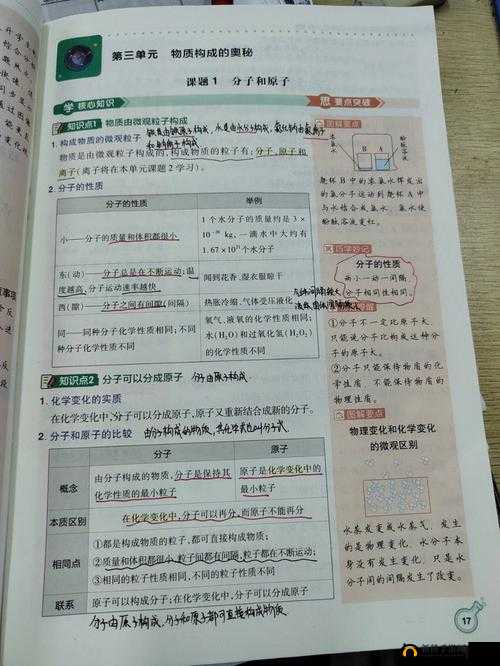 第三单元 物质构成的奥秘
课题1 分子和原子
学 核心知识
思 要点突破
知识点1 物质由微观粒子构成
1. 构成物质的微观粒子
物质是由微观粒子构成的,构成物质的粒子有:分子,原子和
离子(离子将在本单元课题2学习)。
2. 分子的性质
分子的性质 举例
小——分子的质量和体积都很小
1个水分子的质量约是3×
10⁻²⁶ kg,一滴水中大约有
1.67×10²¹个水分子
东(动)——分子总是在不断运动;温
度越高,分子运动速率越快
闻到花香、湿衣服晾干
西(隙)——分子之间有间隙(间隔)
热胀冷缩、气体受压液化
同——同种分子化学性质相同;不同
种分子化学性质不同
氧气、液氧的化学性质相同;
水(H₂O)和过氧化氢(H₂O₂)
的化学性质不同
知识点2 分子可以分成原子
分子由原子构成
1. 化学变化的实质
在化学变化中,分子可以分成原子,原子又重新结合成新的分子。
2. 分子和原子的比较
分子 原子
概念
由分子构成的物质,分子是保持其
化学性质的最小粒子
原子是化学变化中的
最小粒子
本质区别
在化学变化中,分子可以再分,而原子不能再分
相同点
①都是构成物质的粒子,都可直接构成物质;
②质量和体积都很小,粒子间都有间隔,粒子都在不断运动;
③相同的粒子性质相同,不同的粒子性质不同
联系
原子可以构成分子;在化学变化中,分子可以分成原子
分子由原子构成,分子和原子都可直接构成物质
图解要点
浓氨水
酚酞溶液
烧杯B中的浓氨水挥发出
的氨分子运动到烧杯A中
与水结合成氨水,氨水使
酚酞溶液变红。
巧学妙记
分子的性质
两小一动一间隔,
分子相同性相同。
①分子不一定比原子大,
只能说分子比构成这种分
子的原子大。
②分子只能保持物质的化
学性质,不能保持物质的
物理性质。
图解要点
物理变化和化学变化
的微观区别
水蒸发变成水蒸气,发生
的是物理变化,水分子本
身没有发生变化,只是水
分子间的间隔发生了改变。
17